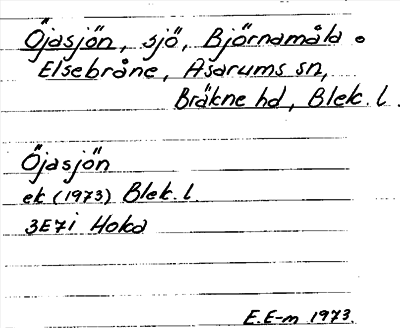 Öjasjön, sjö, Björnamåla o
Elsebråne, Asarums sn,
Bräkne hd, Blek. l.
Öjasjön
ek (1973) Blek. l.
3E7i Hoka
E.E-m 1973.